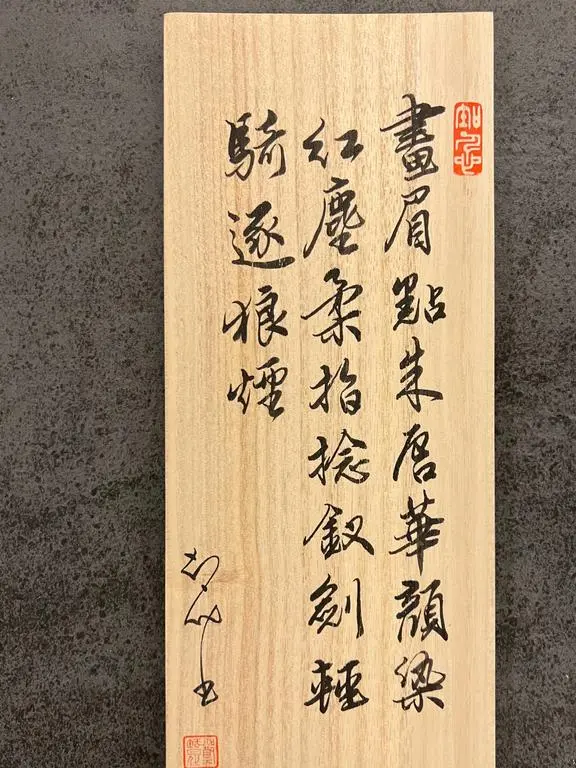 畫眉點朱唇華顏染
紅塵柔指捻釵劍輕
騎逐狼煙